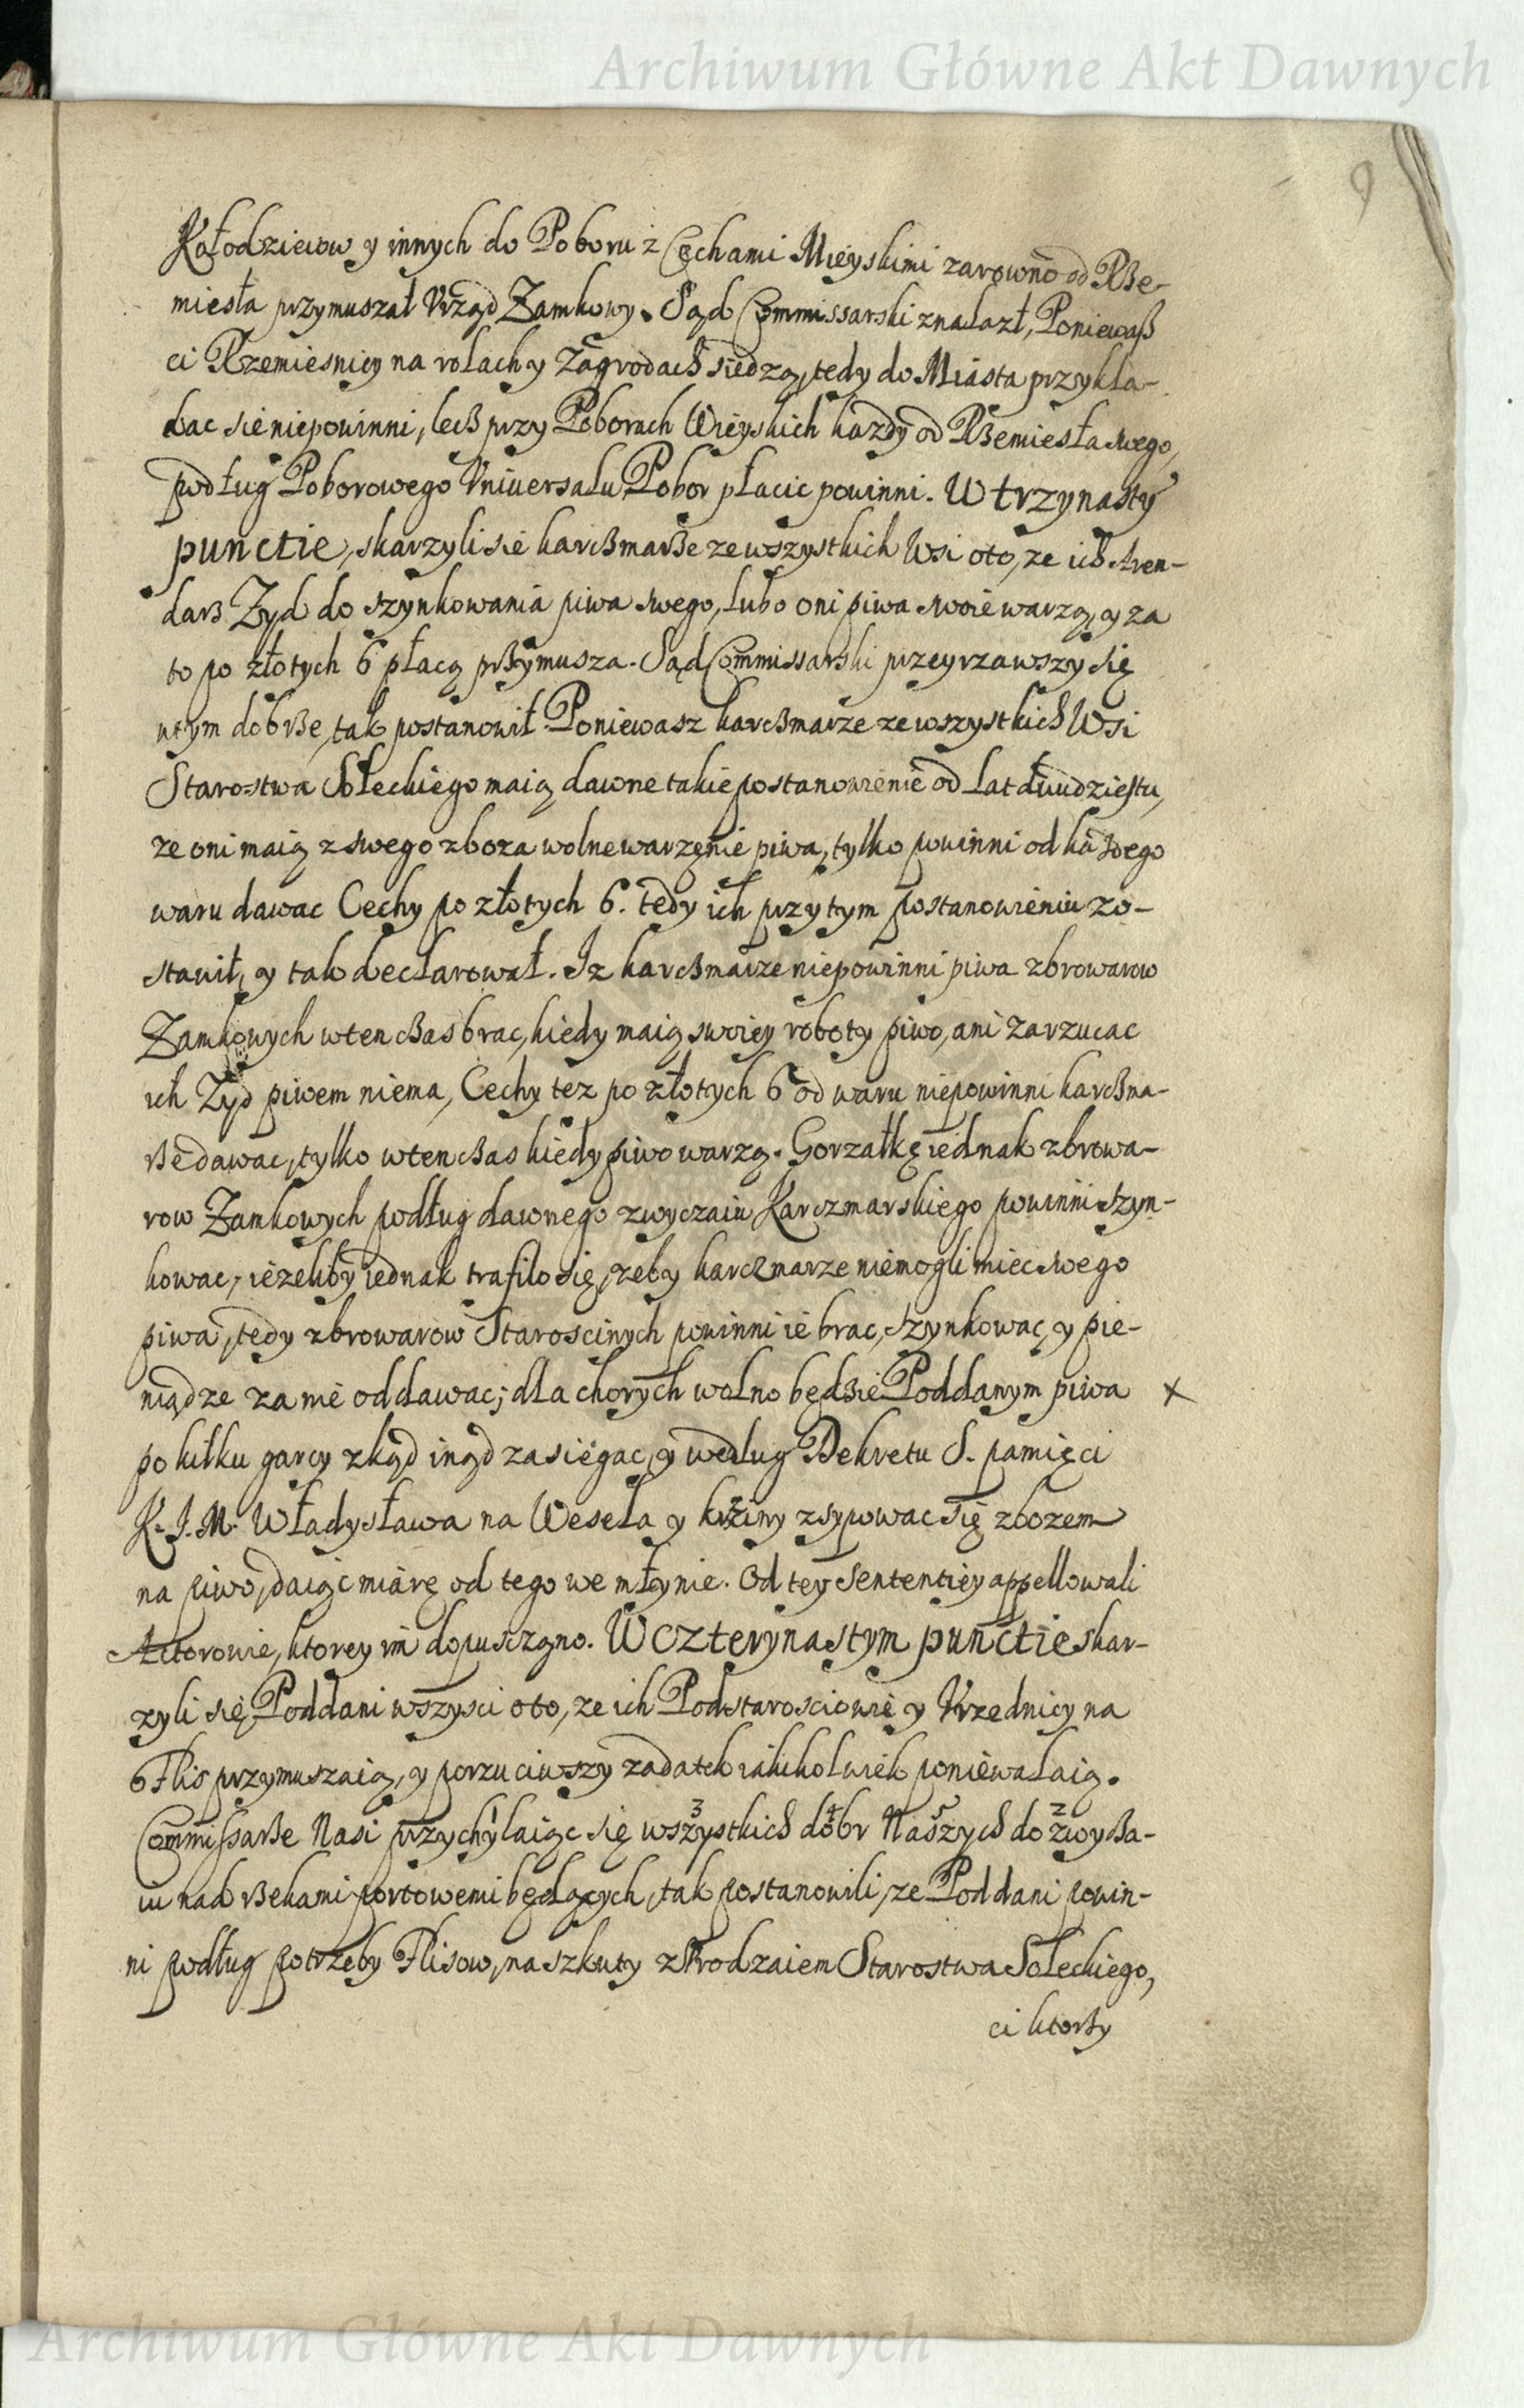 Archiwum Główne Akt Dawnych
9
Kołodzieiow y innych do Poboru z Cechami Mieyskimi zarowno od Rße-
miesła przymuszał Vrząd Zamkowy. Sąd Commissarski znalazł, Poniewaß
ci Rzemiesnicy na rolach y Zagrodach siedzą, tedy do Miasta przykła-
dac sie niepowinni, lecß przy Poborach Wieyskich kazdy od Rßemiesła swego,
podług Poborowego Vniuersału Pobor płacic powinni. W trzynasty
punctie, skarzyli sie karcßmarße ze wszystkich Wsi oto, ze ich Aren-
darß Zyd do szynkowania piwa swego, lubo oni piwa swoie warzą, y za
to po złotych 6 płacą prßymusza. Sąd Commissarski przeyrzawszy się
wtym dobrße, tak postanowił. Poniewasz karcßmarze ze wszystkich Wsi
Starostwa Soleckiego maią dawne takie postanowienie od lat dwudziestu,
ze oni maią z swego zboza wolne warzęnie piwa, tylko powinni od kazdego
waru dawac Cechy po złotych 6. tedy ich przy tym postanowieniu zo-
stawił, y tak declarował. Iz karcßmarze niepowinni piwa zbrowarow
Zamkowych wten cßas brac, kiedy maią swoiey roboty piwo, ani zarzucac
ich Zyd piwem niema, Cechy tez po złotych 6 od waru niepowinni karcßma-
rße dawac, tylko wten cßas kiedy piwo warzą. Gorzałkę iednak zbrowa-
row Zamkowych podług dawnego zwyczaiu Karczmarskiego powinni szyn-
kowac, iezeliby iednak trafiło się, zeby karczmarze niemogli miec swego
piwa, tedy zbrowarow Staroscinych powinni ie brac, szynkowac, y pie-
niądze za nie oddawac; dla chorych wolno będßie Poddanym piwa x
po kilku garcy zkąd inąd zasiegac, y według Dekretu S. pamięci
K. J. M. Władysława na Wesela y krziny zsypowac się zbozem
na piwo, daiąc miarę od tego we młynie. Od tey Sententiey appellowali
Actorowie, ktorey im dopusczono. W czterynastym punctie skar-
zyli się, Poddani wszysci oto, ze ich Podstarosciowie y Vrzednicy na
Flis przymuszaią, y porzuciwszy zadatek iakikolwiek poniewalaią.
1 3 4 5 2
Commissarße Nasi przychylaiąc się wszystkich dobr Naszych do zwycßa-
iu nad rßekami portowemi będących, tak postanowili, ze Poddani powin-
ni podług potrzeby Flisow, na szkuty z Vrodzaiem Starostwa Soleckiego,
ci ktorßy
Archiwum Główne Akt Dawnych